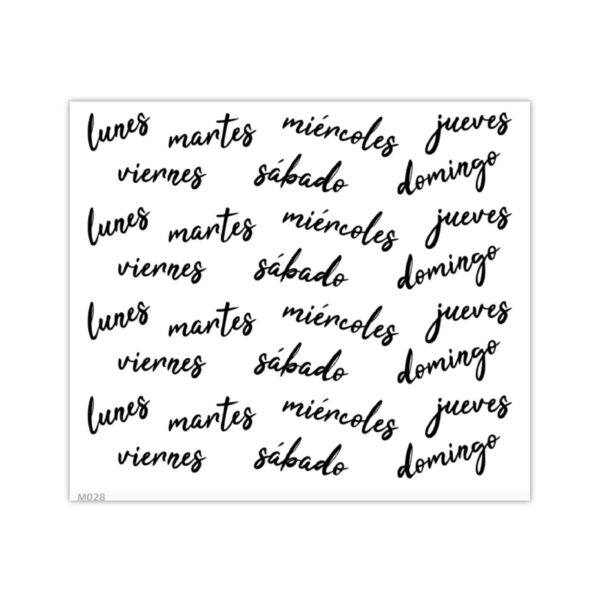 lunes martes miércoles jueves
viernes sábado domingo
lunes martes miércoles jueves
viernes sábado domingo
lunes martes miércoles jueves
viernes sábado domingo
lunes martes miércoles jueves
viernes sábado domingo
M028